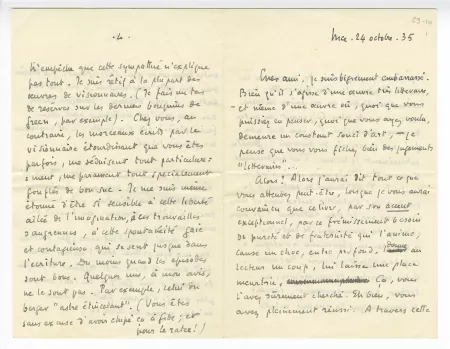 .4.
N'empêche que cette sympathie n'explique
pas tout. Je suis rétif à la plupart des
œuvres de visionnaires. (Je fais un tas
de réserves sur les derniers bouquins de
Green, par exemple). Chez vous, au
contraire, les morceaux écrits par le
visionnaire étourdissant que vous êtes
parfois, me séduisent tout particulière-
ment, me paraissent tout spécialement
gonflés de bon suc. Je me suis même
étonné d'être si sensible à cette liberté
ailée de l'imagination, à ces trouvailles
saugrenues, à cette spontanéité gaie
et contagieuse qui se sent jusque dans
l'écriture. Du moins quand les épisodes
sont bons. Quelques uns, à mon avis,
ne le sont pas. Par exemple, celui du
berger "astre étincelant". (Vous êtes
sans excuse d'avoir chipé ça à Gide; et
pour le rater!)
Nice. 24 octobre. 35
Cher ami, je suis bigrement embarrassé.
Bien qu'il s'agisse d'une œuvre très littéraire,
- et même d'une œuvre où, quoi que vous
puissiez en penser, quoi que vous ayez voulu,
demeure un constant souci d'art, - je
pense que vous vous fichez bien des jugements
"littéraires"...
Alors? Alors j'aurai dit tout ce que
vous attendez peut-être, lorsque je vous aurai
convaincu que ce livre, par son accent
exceptionnel, par ce frémissement besoin
de pureté et de fraternité qui l'anime,
cause un choc, entre profond, donne au
lecteur un coup, lui laisse une place
meurtrie, Ça, vous
l'avez sûrement cherché. Eh bien, vous
avez pleinement réussi. A travers cette